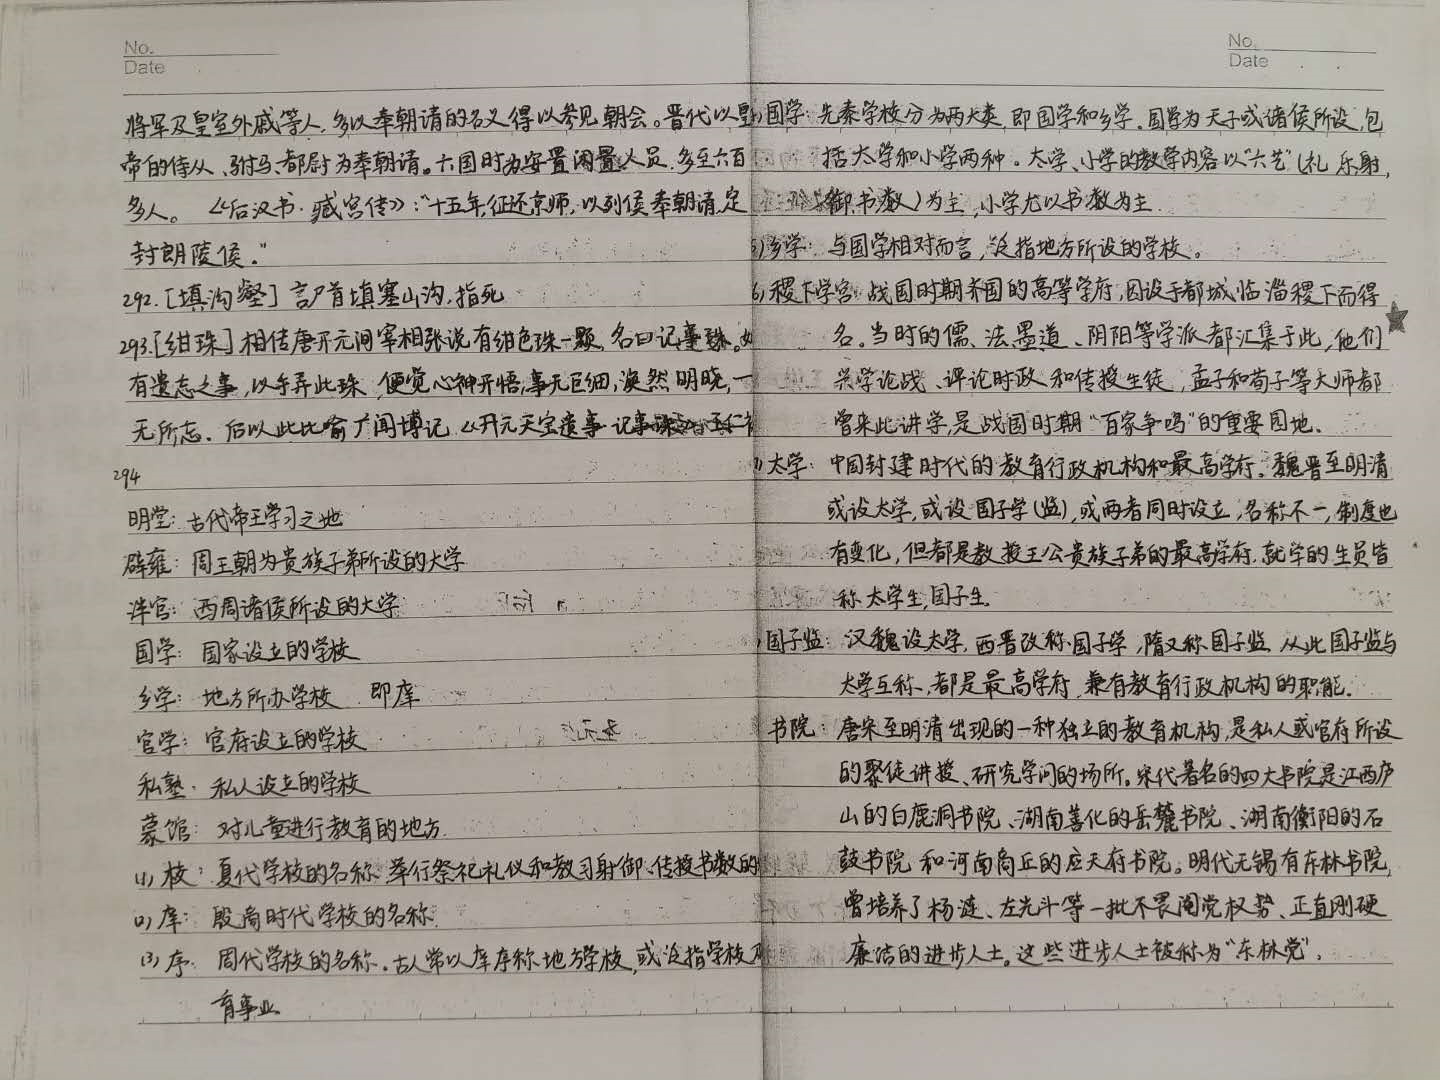 No.
Date
将军及皇室外戚等人,多以奉朝请的名义得以参见朝会。晋代以皇
帝的侍从、驸马、都尉为奉朝请。六国时为安置闲置人员,多至六百
多人。《后汉书·臧宫传》:"十五年,征还京师,以列侯奉朝请,定
封朗陵侯."
292.[填沟壑] 言尸首填塞山沟,指死
293.[绀珠] 相传唐开元间宰相张说有绀色珠一颗,名曰记事珠。如
有遗忘之事,以手弄此珠,便觉心神开悟,事无巨细,涣然明晓,一
无所忘.后以此比喻广闻博记《开元天宝遗事·记事珠》王仁
294
明堂:古代帝王学习之地
辟雍:周王朝为贵族子弟所设的大学
泮宫:西周诸侯所设的大学
国学:国家设立的学校
乡学:地方所办学校 即庠
官学:官府设立的学校
私塾:私人设立的学校
蒙馆:对儿童进行教育的地方
(1)校:夏代学校的名称.举行祭祀礼仪和教习射御、传授书数的
(2)庠:殷商时代学校的名称.
(3)序:周代学校的名称.古人常以庠序称地方学校,或泛指学校
育事业
No.
Date
国学:先秦学校分为两大类,即国学和乡学.国学为天子或诸侯所设,包
括太学和小学两种.太学、小学的教学内容以"六艺"(礼、乐、射,
御、书、数)为主,小学尤以书数为主.
)乡学:与国学相对而言,泛指地方所设的学校。
6)稷下学宫:战国时期齐国的高等学府,因设于都城临淄稷下而得
名。当时的儒、法、墨、道、阴阳等学派都汇集于此,他们
兴学论战、评论时政和传授生徒,孟子和荀子等大师都
曾来此讲学,是战国时期"百家争鸣"的重要园地.
)太学:中国封建时代的教育行政机构和最高学府.魏晋至明清
或设太学,或设国子学(监),或两者同时设立,名称不一,制度也
有变化,但都是教授王公贵族子弟的最高学府.就学的生员皆
称太学生,国子生.
)国子监:汉魏设太学,西晋改称国子学,隋又称国子监.从此国子监与
太学互称,都是最高学府,兼有教育行政机构的职能.
书院:唐宋至明清出现的一种独立的教育机构,是私人或官府所设
的聚徒讲授、研究学问的场所。宋代著名的四大书院是江西庐
山的白鹿洞书院、湖南善化的岳麓书院、湖南衡阳的石
鼓书院和河南商丘的应天府书院。明代无锡有东林书院,
曾培养了杨涟、左光斗等一批不畏阉党权势、正直刚硬
廉洁的进步人士。这些进步人士被称为"东林党".